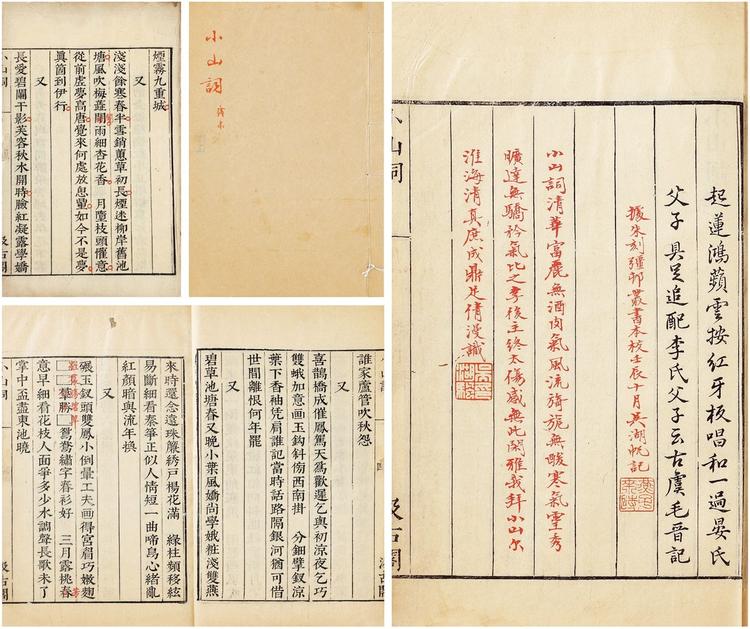 煙霧九重城
又
淺淺餘寒春半雪銷蕙草初長煙迷柳岸舊池
塘風吹梅蕊鬧雨細杏花香 月墮枝頭懽意
從前虛夢高唐覺來何處放思量如今不是夢
真箇到伊行
又
長愛碧闌干影芙蓉秋水開時臉紅凝露學嬌
小山詞 汲古閣
小山詞
誰家蘆管吹秋怨
又
喜鵲橋成催鳳駕天爲歡遲乞與初涼夜乞巧
雙蛾加意畫玉鉤斜傍西南掛 分鈿擘釵涼
葉下香袖凭肩誰記當時話路隔銀河猶可借
世間離恨何年罷
又
碧草池塘春又晚小葉風嬌尚學娥粧淺雙燕
來時還念遠珠簾綉戶楊花滿 綠柱頻移絃
易斷細看秦箏正似人情短一曲啼烏心緒亂
紅顏暗與流年換
又
碾玉釵頭雙鳳小倒暈工夫畫得宮眉巧嫩麴
羅裙勝碧草鴛鴦繡字春衫好 三月露桃春
意早細看花枝人面爭多少水調聲長歌未了
掌中盃盡東池曉
起蓮鴻蘋雲按紅牙板唱和一過晏氏
父子具足追配李氏父子云古虞毛晉記
據朱刻彊邨叢書本校壬辰十月吳湖帆記
小山詞清華富麗無酒肉氣風流旖旎無酸寒氣靈秀
曠達無驕矜氣比之李後主終太傷感無此閑雅我拜小山尔
淮海清真庶成鼎足倩漫識
小山詞
汲古閣